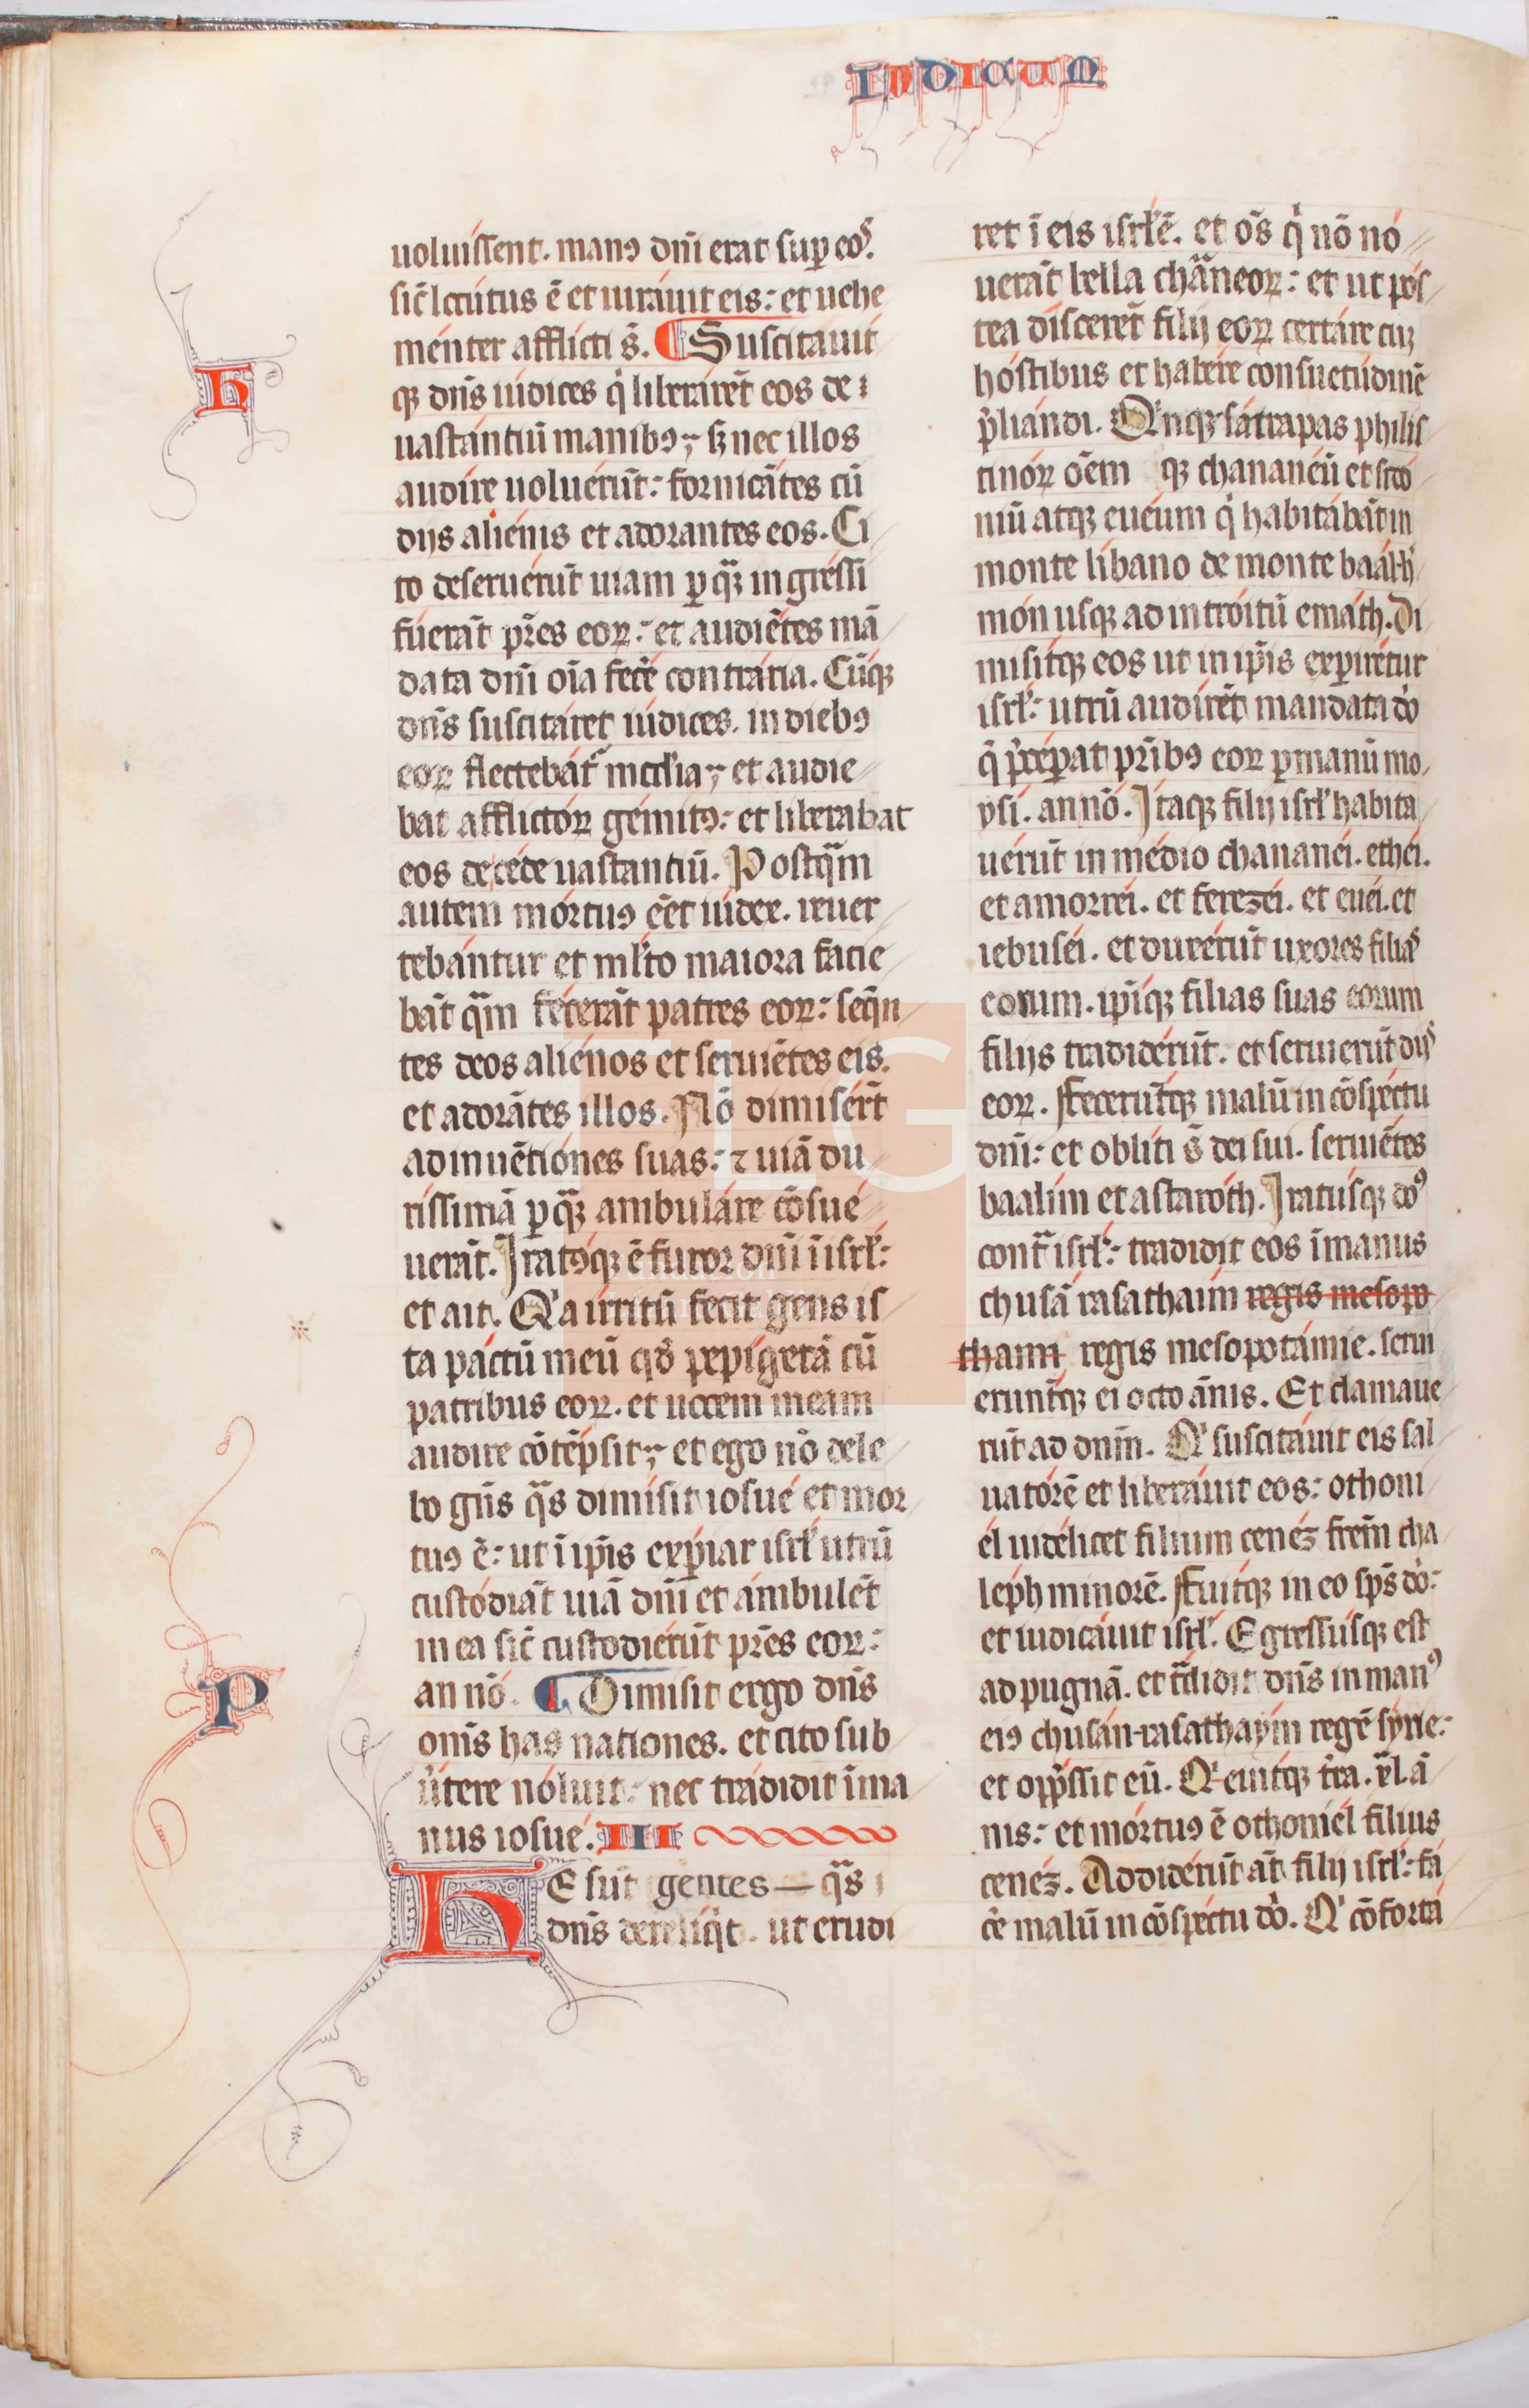 IUDICUM
h
uoluissent. manꝰ dñi erat suꝑ eoˢ.
sic̄ locutus ē et iurauit eis: et uehe
menter afflicti s̄. ¶ Suscitauit
qꝫ dñs iudices qͥ liberarēt eos de
uastantiū manibꝰ; sꝫ nec illos
audire uoluerūt: fornicātes cū
dijs alienis et adorantes eos. Ci
to deseruerūt uiam ꝑ qᷓꝫ ingressi
fuerāt pr̄es eoꝝ: et audiētes mā
data dñi oīa fecē contraria. Cūqꝫ
dñs suscitaret iudices. in diebꝰ
eoꝝ flectebat᷑ mĩcďia; et audie
bat afflictoꝝ gemitꝰ: et liberabat
eos de cede uastantiū. Postqᷓm
autem mortuꝰ eēt iudex. reuer
tebantur et ml̓to maiora facie
bāt qᷓm fecerāt patres eoꝝ: seq̄n
tes deos alienos et seruiētes eis.
et adorātes illos. Nō dimiserūt
adinuētiones suas: ⁊ uiā du
rissimā ꝑ qᷓꝫ ambulare cōsue
uerāt. Iratꝰqꝫ ē furor dñi ī isrl̓:
et ait. Qͥa irritū fecit gens is
ta pactū meū qď pepigerā cū
patribus eoꝝ. et uocem meam
audire cōtēpsit; et ego nō dele
bo gn̄s qᷓs dimisit iosue et mor
tuꝰ ē: ut ī ip̄is exꝑiar isrl̓ utrū
custodiāt uiā dñi et ambulēt
in ea sic̄ custodierūt pr̄es eoꝝ:
an nō. ¶ Dimisit ergo dñs
om̄s has nationes. et cito sub
u̓tere noluit: nec tradidit ī ma
nus iosue. III
P
He sūt gentes qᷓs
dñs dereliqͥt. ut erudi
ret ī eis isrl̓ē. et oms̄ qͥ nō no
uerāt bella chᷓaneoꝝ: et ut pos
tea discerēt filij eoꝝ certare cuꝫ
hostibus et habere consuetudinē
p̄liandi. Qͥnqꝫ satrapas philis
tinoꝝ oēm qꝫ chananeū et sido
niū atqꝫ eueum qͥ habitabāt in
monte libano de monte baalh̓
mon usqꝫ ad introitū emath. Di
misitqꝫ eos ut in ip̄is exꝑiretur
isrl̓: utrū audirēt mandata dō
q̄ p̄ceꝑat pr̄ibꝰ eoꝝ ꝑ manū mo
ysi. an nō. Itaqꝫ filij isrl̓ habita
uerūt in medio chananei. ethei.
et amorrei. et ferezei. et euei. et
iebusei. et duxerūt uxores filiaˢ
eorum. ip̄iqꝫ filias suas eorum
filijs tradiderūt. et seruierūt dijˢ
eoꝝ. Feceruntqꝫ malū in cōspectu
dñi: et obliti s̄ dei sui. seruiētes
baalim et astaroth. Iratusqꝫ dōˢ
cont̄ isrl̓: tradidit eos ī manus
chusā rasathaim regis mesopo
thami regis mesopotamie. serui
eruntqꝫ ei octo ānis. Et clamaue
rūt ad dnm̄. Qͥ suscitauit eis sal
uatorē et liberauit eos: othoni
el uidelicet filium cenez fr̄em cha
leph minorē. Fuitqꝫ in eo sp̄s dō:
et iudicauit isrl̓. Egressusqꝫ est
ad pugnā. et tͣdidit dñs in manꝰ
eiꝰ chusan rasathaym regē syrie:
et opp̄ssit eū. Qͥeuitqꝫ tr̄a. xl. ā
nis: et mortuꝰ ē othoniel filius
cenez. Addiderūt āt filij isrl̓: fa
cē malū in cōspectu dō. Qͥ cōforta